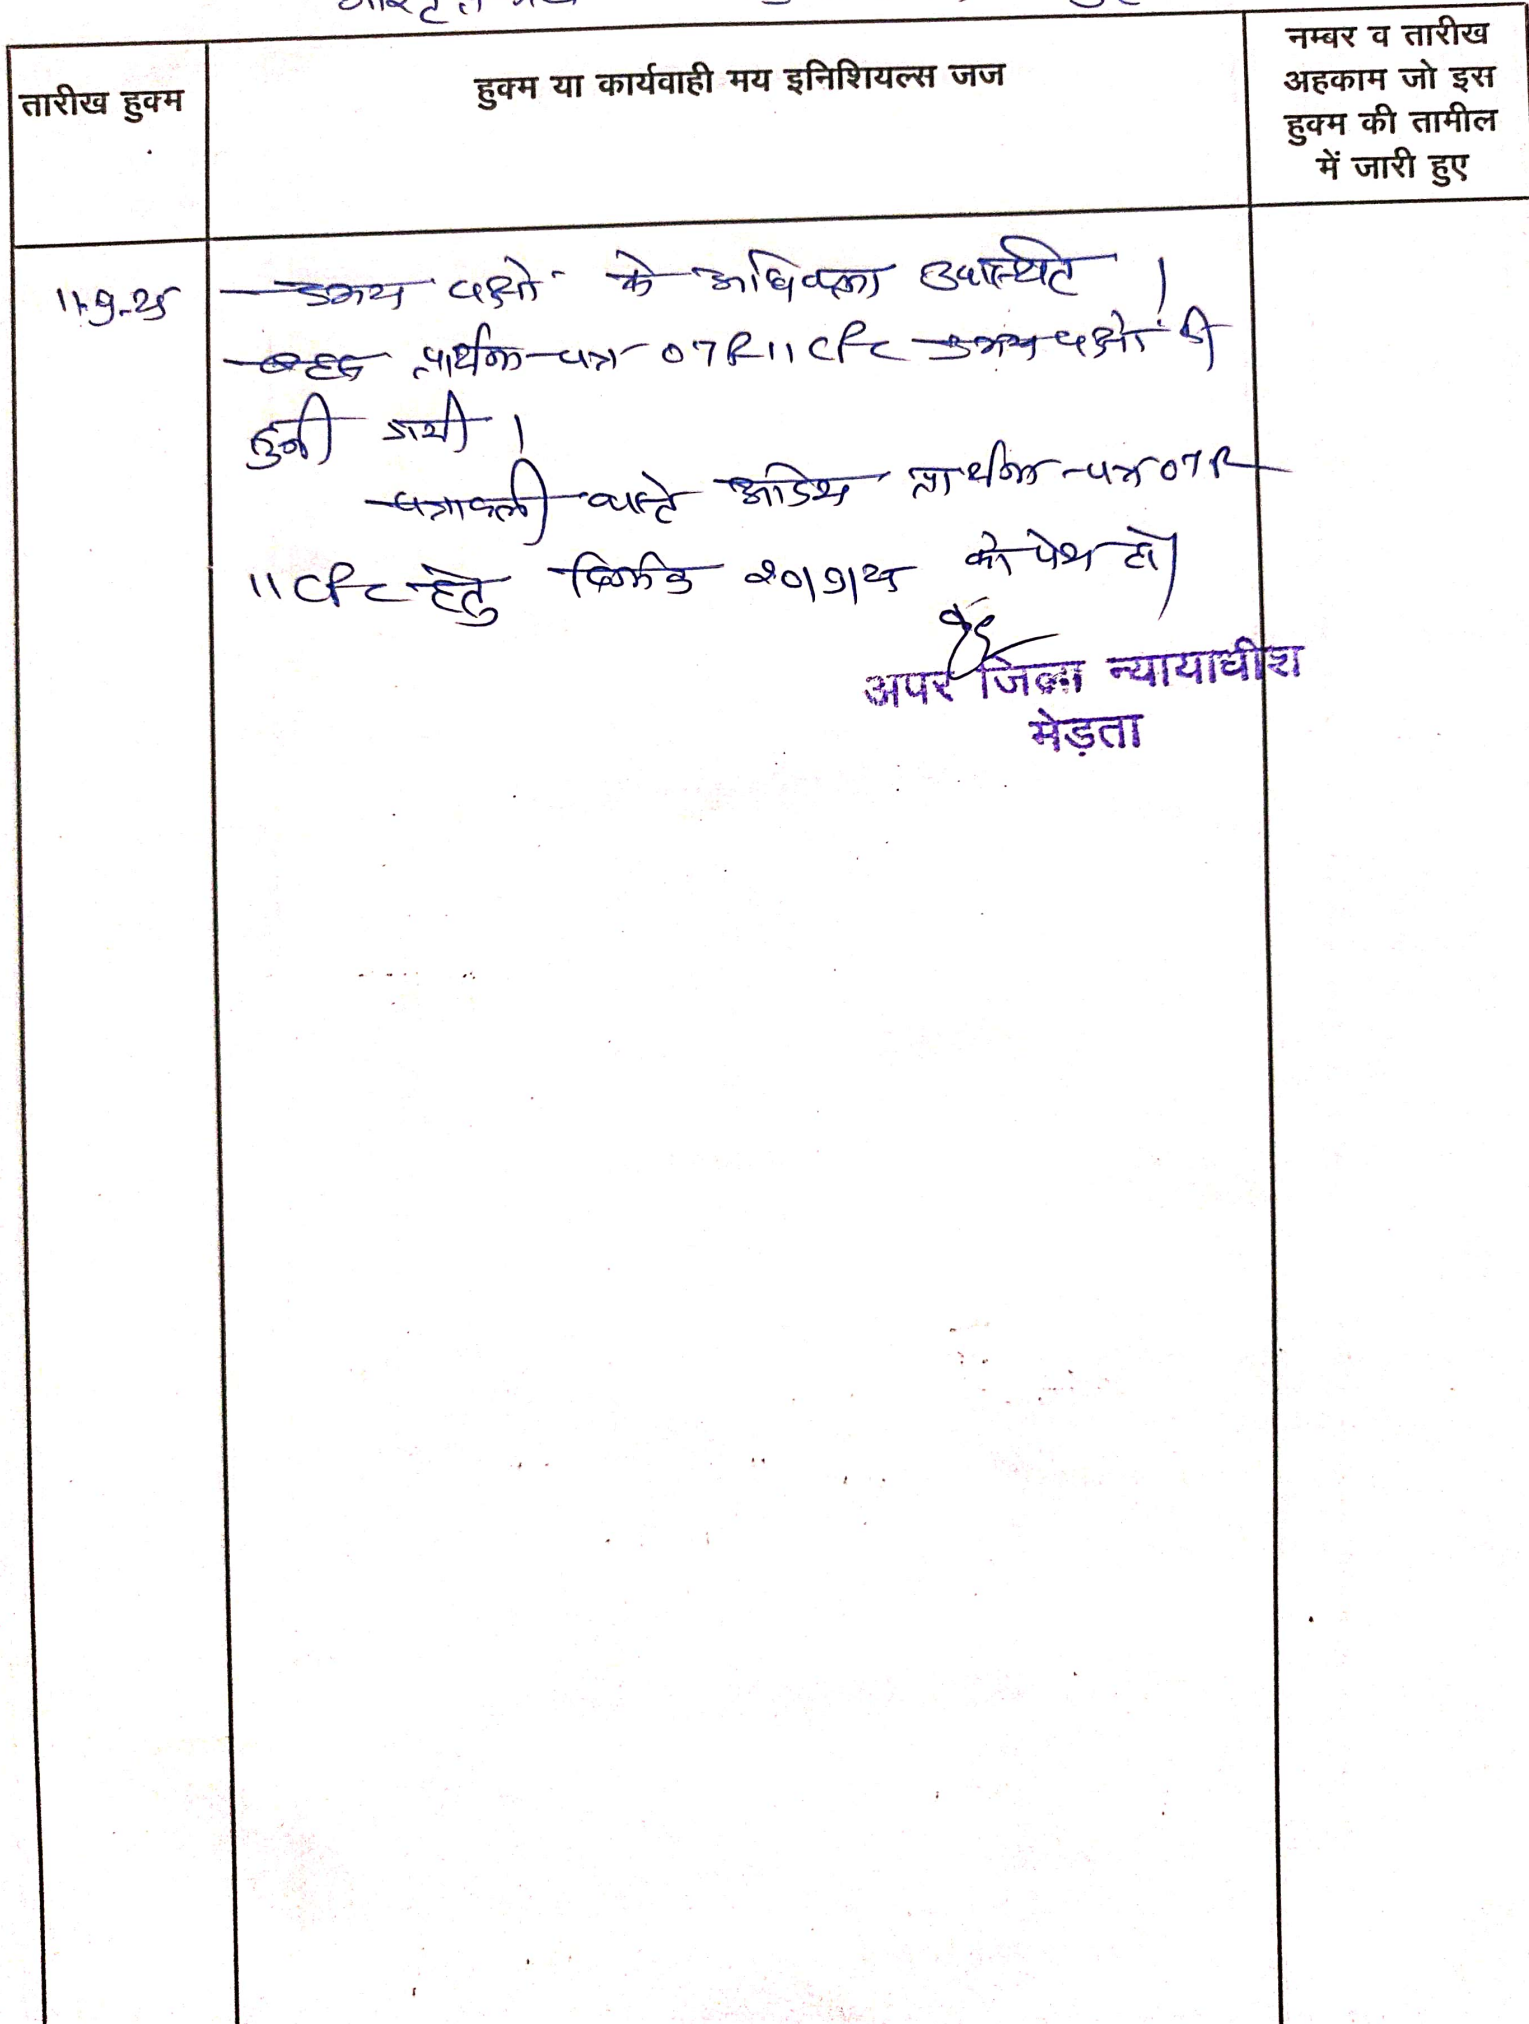 तारीख हुक्म
हुक्म या कार्यवाही मय इनिशियल्स जज
नम्बर व तारीख
अहकाम जो इस
हुक्म की तामील
में जारी हुए
11.9.25
उभय पक्षो के अधिवक्ता उपस्थित ।
बहस प्रार्थना-पत्र 07R11 CPC उभय पक्षो की
सुनी गयी ।
पत्रावली वास्ते आदेश प्रार्थना-पत्र 07R
11 CPC हेतु दिनांक 20/9/25 को पेश हो
अपर जिला न्यायाधीश
मेड़ता